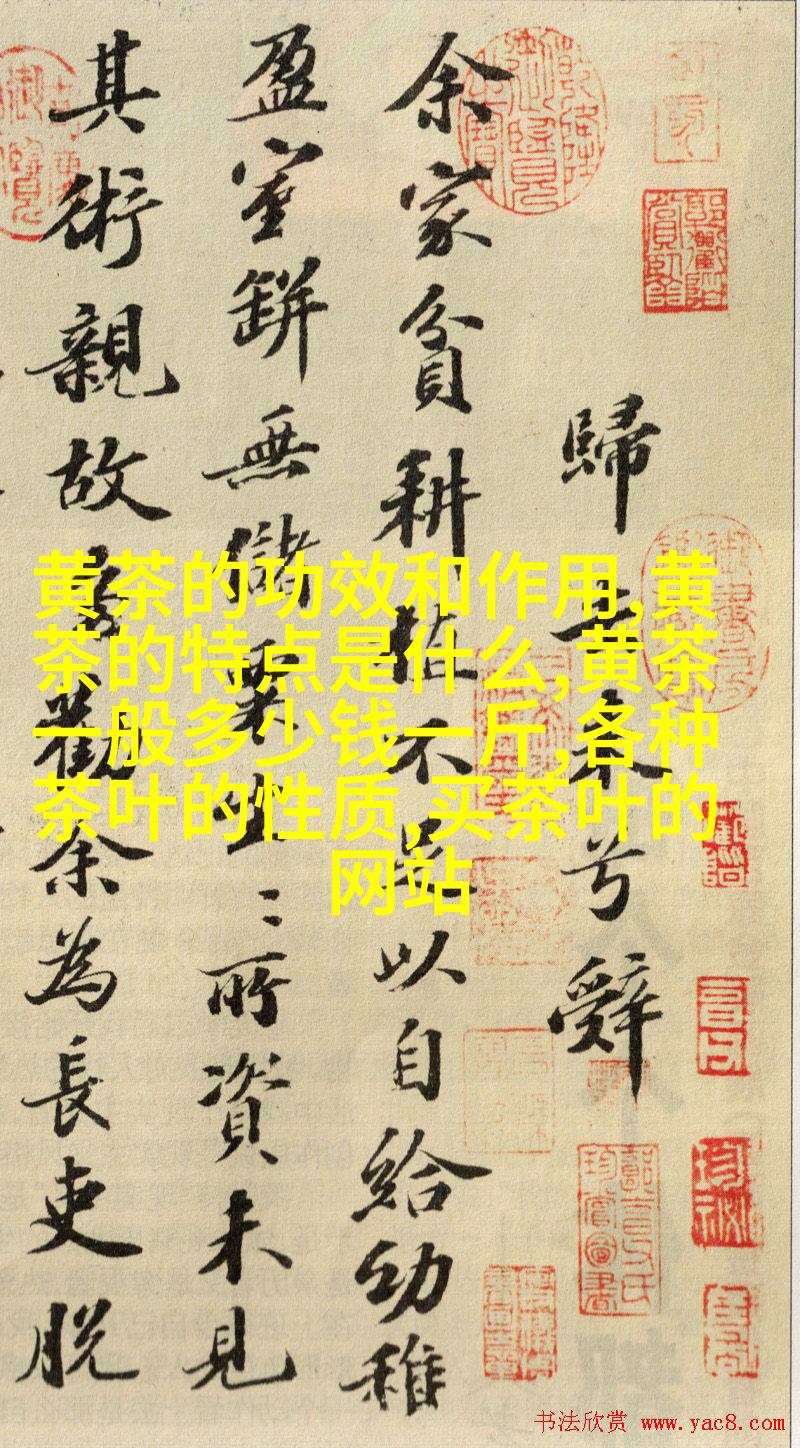 歸去來兮辭
余家貧耕植不足以自給幼稚
盈室缾無儲粟生〻所資未見
其術親故多勸余為長吏脫
黄茶的功效和作用,黄
茶的特点是什么,黄茶
一般多少钱一斤,各种
茶叶的性质,买茶叶的
网站
书法欣赏 www.yac8.com